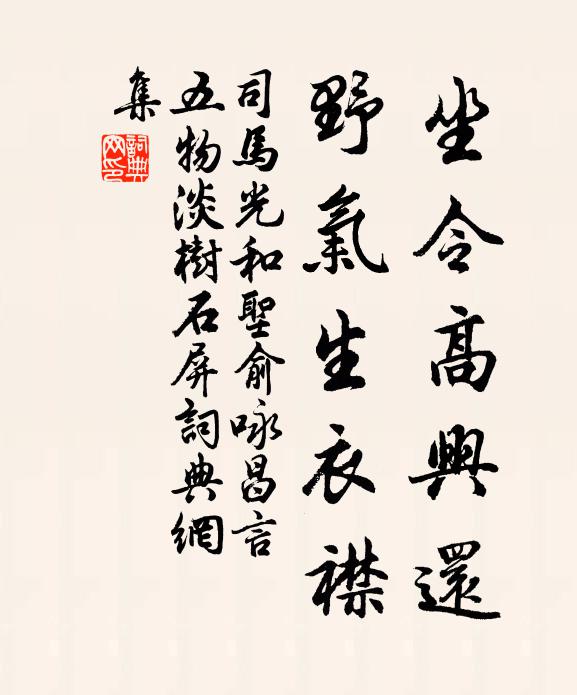 坐令高興還
野氣生衣襟
司馬光和聖俞咏昌言
五物淡樹石屏詞典網
集
詞典
网印